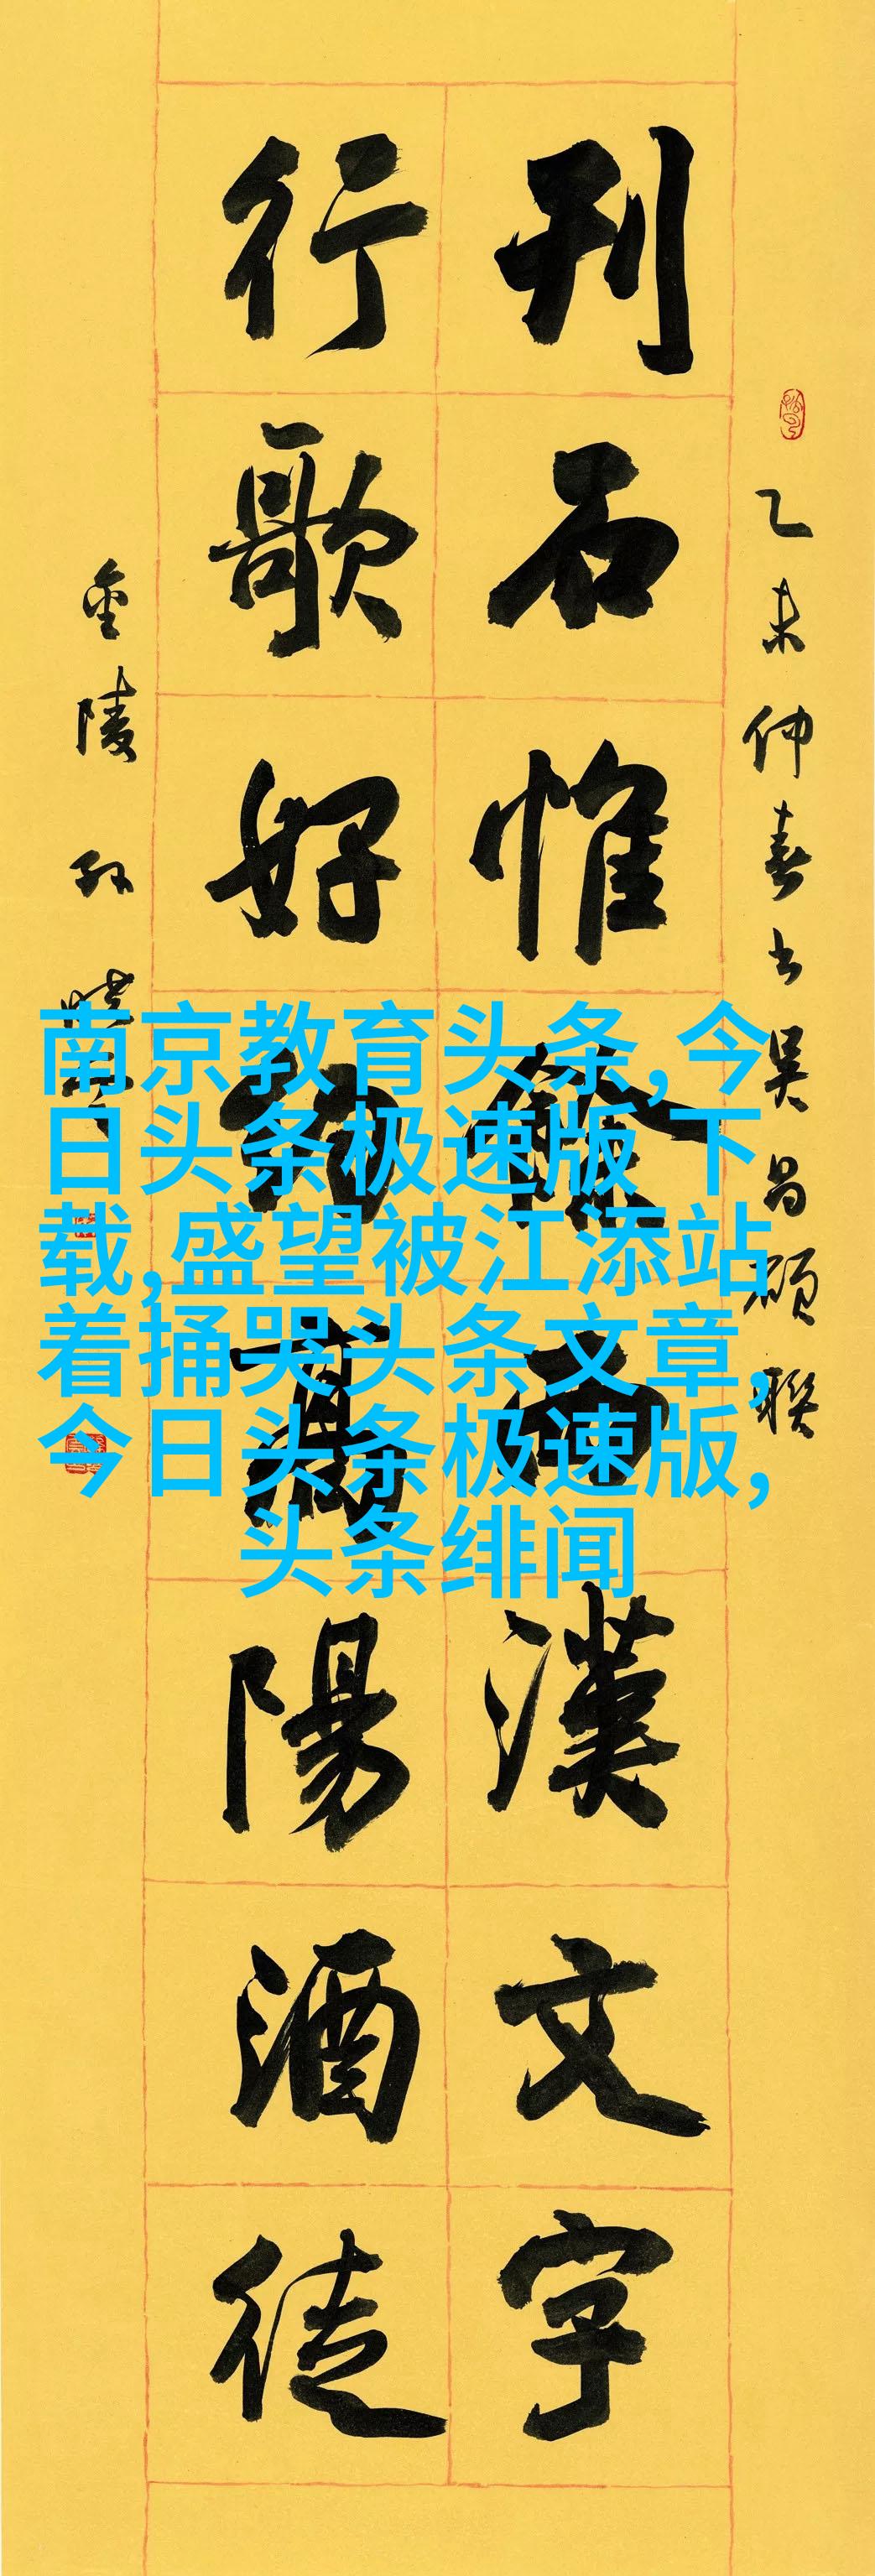 乙未仲春書吳昌碩聯
刊石惟餘西漢文字
行歌好高陽酒徒
金陵孫曉
南京教育头条,今
日头条极速版 下
载,盛望被江添站
着捅哭头条文章,
今日头条极速版,
头条绯闻